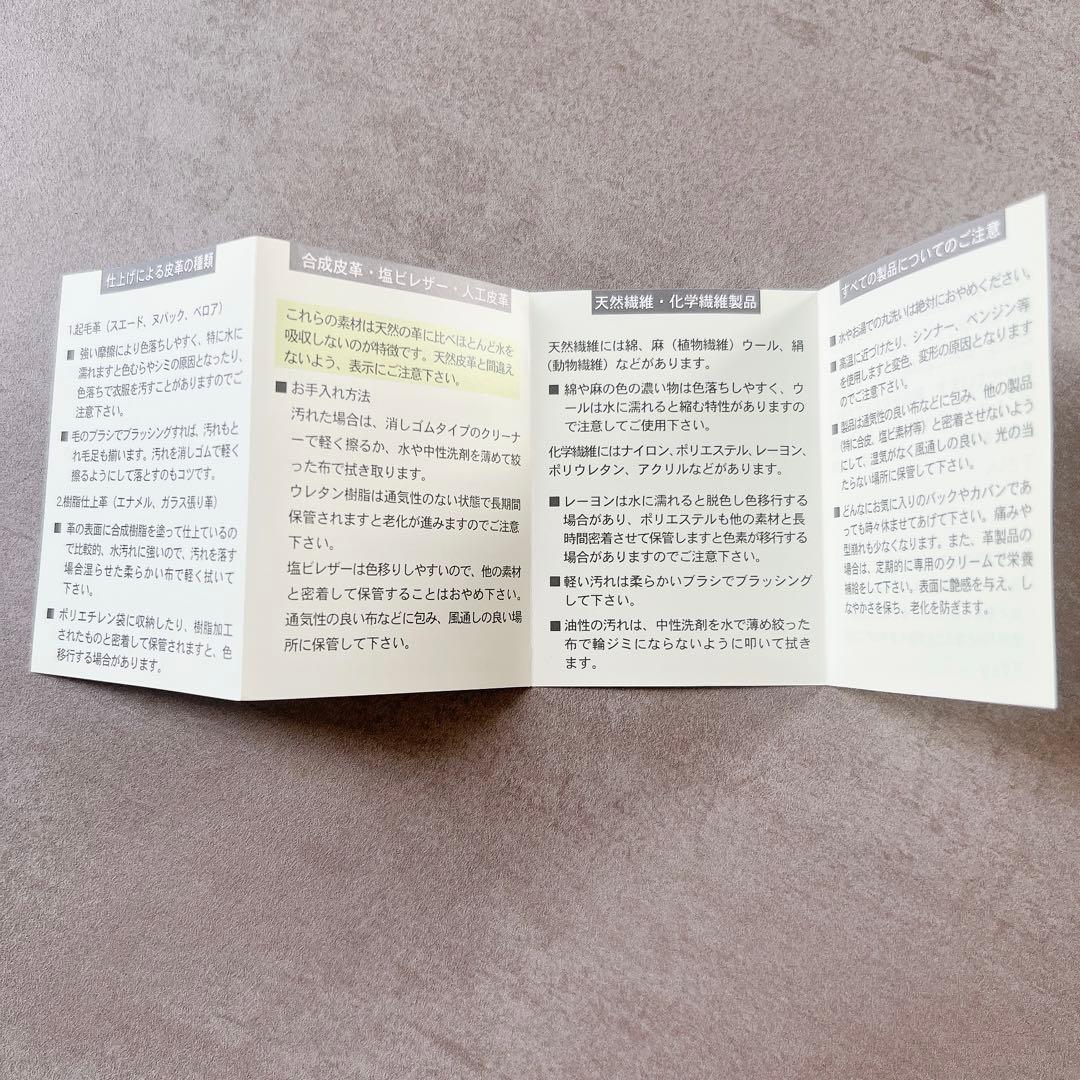 仕上げによる皮革の種類
1.起毛革（スエード、ヌバック、ベロア）
■ 強い摩擦により色落ちしやすく、特に水に
濡れますと色むらやシミの原因となったり、
色落ちで衣服を汚すことがありますのでご
注意下さい。
■ 毛のブラシでブラッシングすれば、汚れもと
れ毛足も揃います。汚れを消しゴムで軽く
擦るようにして落とすのもコツです。
2.樹脂仕上革（エナメル、ガラス張り革）
■ 革の表面に合成樹脂を塗って仕上ているの
で比較的、水汚れに強いので、汚れを落す
場合湿らせた柔らかい布で軽く拭いて
下さい。
■ ポリエチレン袋に収納したり、樹脂加工
されたものと密着して保管されますと、色
移行する場合があります。
合成皮革・塩ビレザー・人工皮革
これらの素材は天然の革に比べほとんど水を
吸収しないのが特徴です。天然皮革と間違え
ないよう、表示にご注意下さい。
■ お手入れ方法
汚れた場合は、消しゴムタイプのクリーナ
ーで軽く擦るか、水や中性洗剤を薄めて絞
った布で拭き取ります。
ウレタン樹脂は通気性のない状態で長期間
保管されますと老化が進みますのでご注意
下さい。
塩ビレザーは色移りしやすいので、他の素材
と密着して保管することはおやめ下さい。
通気性の良い布などに包み、風通しの良い場
所に保管して下さい。
天然繊維・化学繊維製品
天然繊維には綿、麻（植物繊維）ウール、絹
（動物繊維）などがあります。
■ 綿や麻の色の濃い物は色落ちしやすく、ウ
ールは水に濡れると縮む特性がありますの
で注意してご使用下さい。
化学繊維にはナイロン、ポリエステル、レーヨン、
ポリウレタン、アクリルなどがあります。
■ レーヨンは水に濡れると脱色し色移行する
場合があり、ポリエステルも他の素材と長
時間密着させて保管しますと色素が移行する
場合がありますのでご注意下さい。
■ 軽い汚れは柔らかいブラシでブラッシング
して下さい。
■ 油性の汚れは、中性洗剤を水で薄め絞った
布で輪ジミにならないように叩いて拭き
ます。
すべての製品についてのご注意
■ 水やお湯での丸洗いは絶対におやめください。
■ 高温に近づけたり、シンナー、ベンジン等
を使用しますと変色、変形の原因となります
のでご注意下さい。
■ 製品は通気性の良い布などに包み、他の製品
（特に合皮、塩ビ素材等）と密着させないよう
にして、湿気がなく風通しの良い、光の当
たらない場所に保管して下さい。
■ どんなにお気に入りのバックやカバンであ
っても時々休ませてあげて下さい。痛みや
型崩れも少なくなります。また、革製品の
場合は、定期的に専用のクリームで栄養
補給をして下さい。表面に艶感を与え、し
なやかさを保ち、老化を防ぎます。